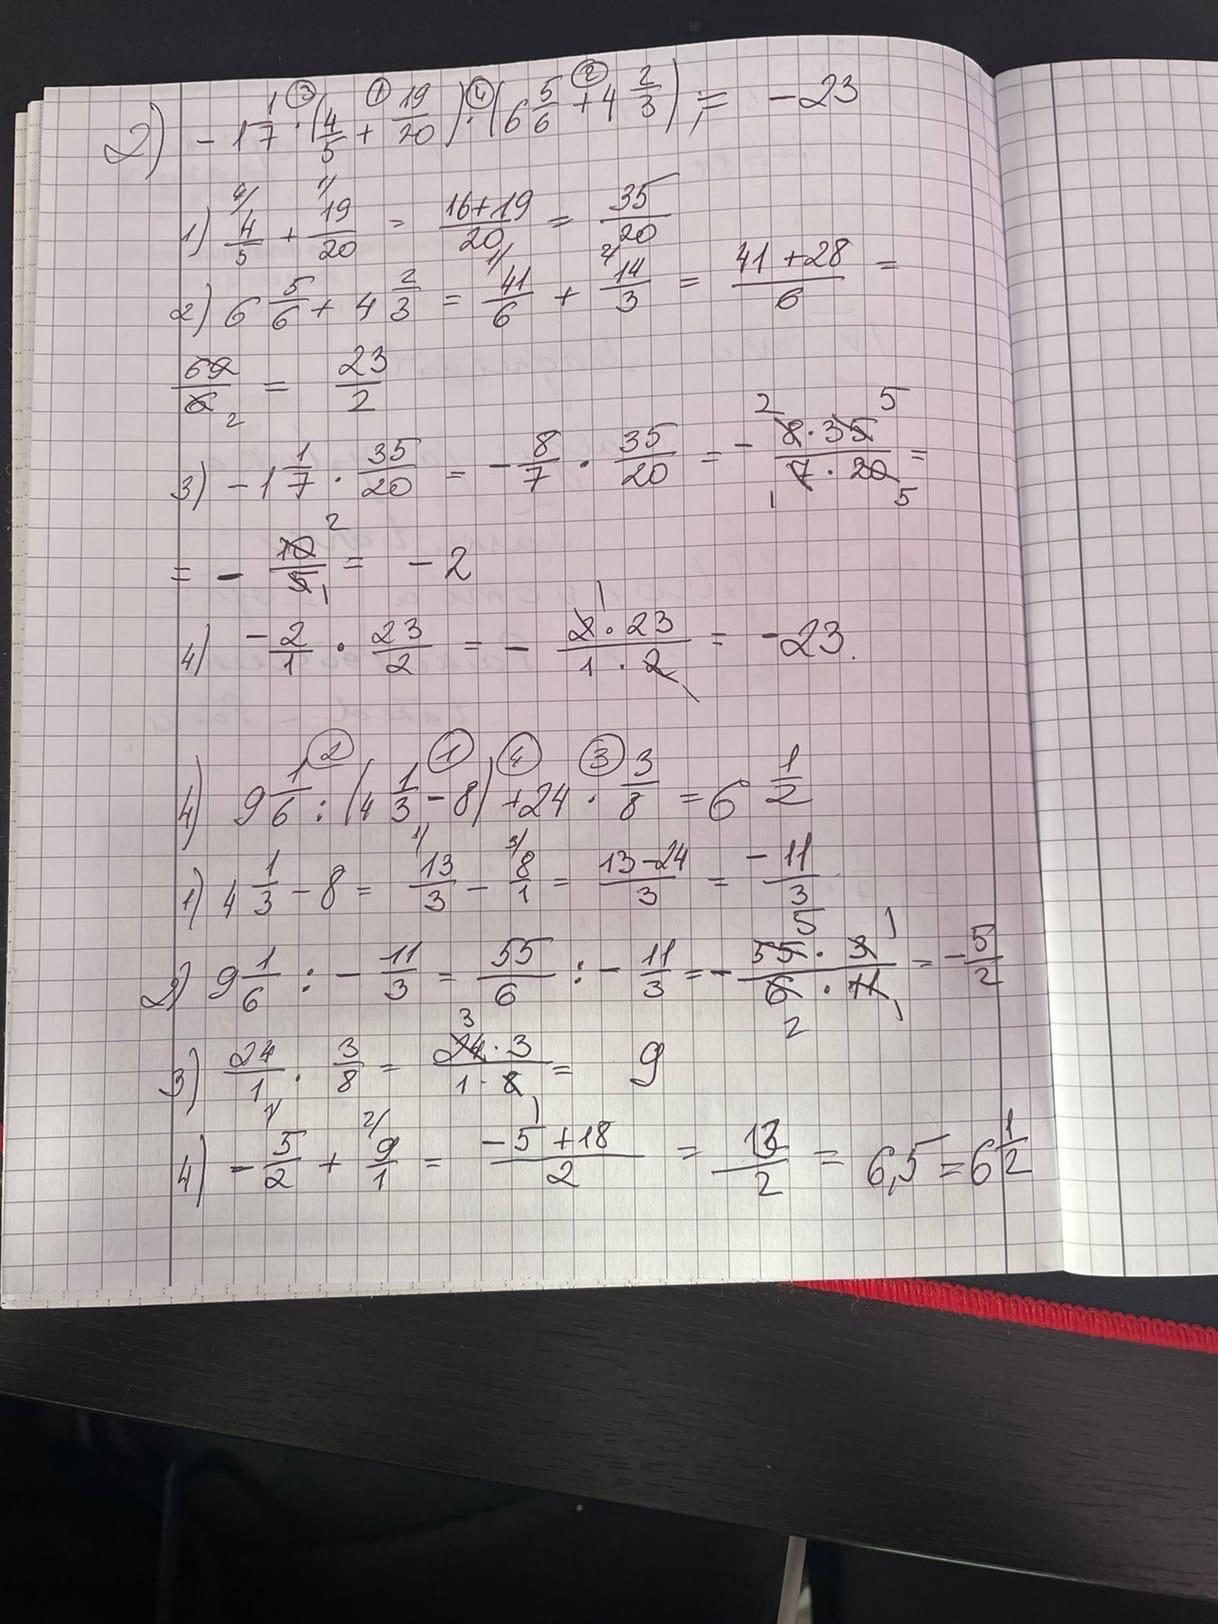 2) - 1 1/7 · (4/5 + 19/20) · (6 5/6 + 4 2/3) = - 23
1) 4/5 + 19/20 = 16+19/20 = 35/20
2) 6 5/6 + 4 2/3 = 41/6 + 14/3 = 41+28/6 =
69/6 = 23/2
3) - 1 1/7 · 35/20 = - 8/7 · 35/20 = - 8·35/7·20 =
= - 10/5 = - 2
4) - 2/1 · 23/2 = - 2·23/1·2 = - 23.
4) 9 1/6 : (4 1/3 - 8) + 24 · 3/8 = 6 1/2
1) 4 1/3 - 8 = 13/3 - 8/1 = 13-24/3 = - 11/3
2) 9 1/6 : - 11/3 = 55/6 : - 11/3 = - 55·3/6·11 = - 5/2
3) 24/1 · 3/8 = 24·3/1·8 = 9
4) - 5/2 + 9/1 = -5+18/2 = 13/2 = 6,5 = 6 1/2